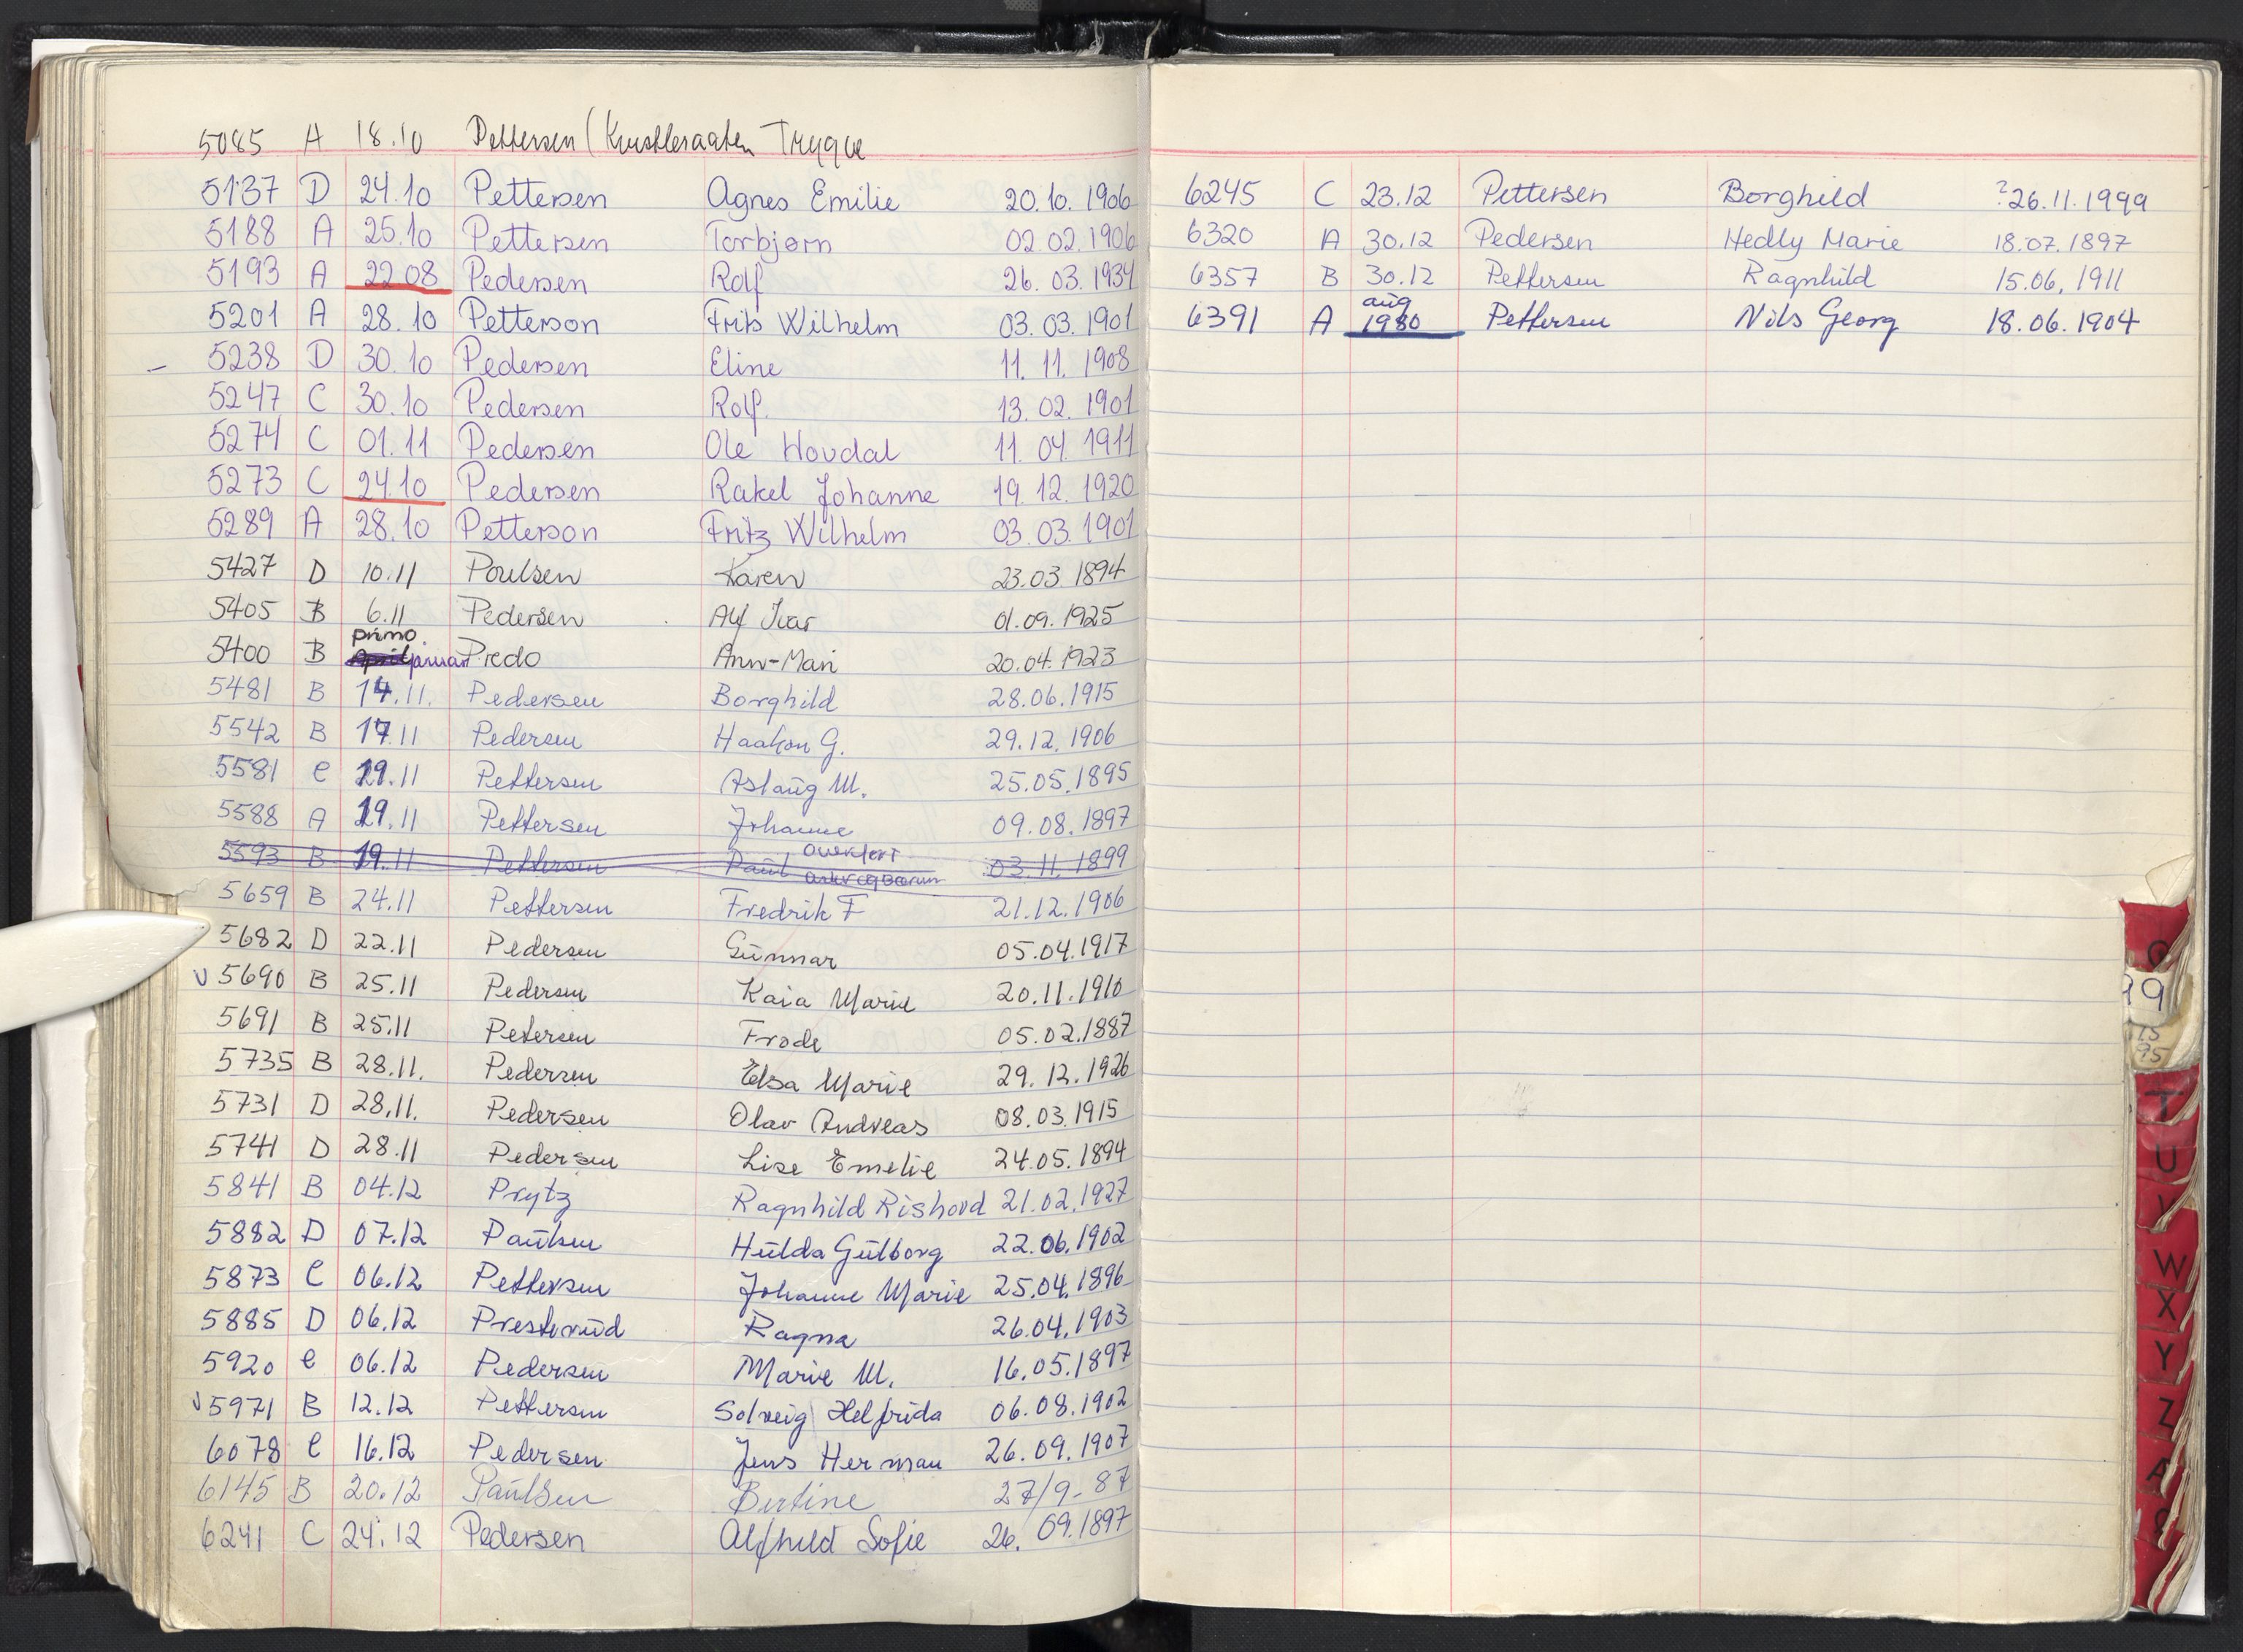 5085 A 18.10 Pettersen ( Trygve
5137 D 24.10 Pettersen Agnes Emilie 20.10.1906
5188 A 25.10 Pettersen Torbjørn 02.02.1906
5193 A 22.08 Pedersen Rolf 26.03.1934
5201 A 28.10 Petterson Frits Wilhelm 03.03.1901
– 5238 D 30.10 Pedersen Eline 11.11.1908
5247 C 30.10 Pedersen Rolf. 13.02.1901
5274 C 01.11 Pedersen Ole Hovdal 11.04.1911
5273 C 24.10 Pedersen Rakel Johanne 19.12.1920
5289 A 28.10 Petterson Fritz Wilhelm 03.03.1901
5427 D 10.11 Poulsen Karen 23.03 1894
5405 B 6.11 Pedersen Alf Ivar 01.09.1925
primo
5400 B April januar Predo Ann-Mari 20.04.1923
5481 B 14.11. Pedersen Borghild 28.06.1915
5542 B 17.11 Pedersen Haakon G. 29.12.1906
5581 C 19.11 Pettersen Aslaug M. 25.05.1895
5588 A 19.11 Pettersen Johanne 09.08.1897
5593 B 19.11 Pettersen Paul overført 03.11.1899
5659 B 24.11 Pettersen Fredrik F 21.12.1906
5682 D 22.11 Pedersen Gunnar 05.04.1917
V 5690 B 25.11 Pedersen Kaia Marie 20.11.1910
5691 B 25.11 Petersen Frode 05.02.1887
5735 B 28.11. Pedersen Elsa Marie 29.12.1926
5731 D 28.11. Pedersen Olav Andreas 08.03.1915
5741 D 28.11 Pedersen Lise Emelie 24.05.1894
5841 B 04.12 Prytz Ragnhild Rishovd 21.02.1927
5882 D 07.12 Paulsen Hulda Gulborg 22.06.1902
5873 C 06.12 Pettersen Johanne Marie 25.04.1896
5885 D 06.12 Presterud Ragna 26.04.1903
5920 C 06.12 Pedersen Marie M. 16.05.1897
V 5971 B 12.12 Pettersen Solveig Helfrida 06.08.1902
6078 C 16.12 Pedersen Jens Herman 26.09.1907
6145 B 20.12 Paulsen Bertine 27/9-87
6241 C 24.12 Pedersen Alfhild Sofie 26.09.1897
6245 C 23.12 Pettersen Borghild ?26.11.1999
6320 A 30.12 Pedersen Hedly Marie 18.07.1897
6357 B 30.12 Pettersen Ragnhild 15.06.1911
aug
6391 A 1980 Pettersen Nils Georg 18.06.1904
T
U
V
W
X
Y
Z